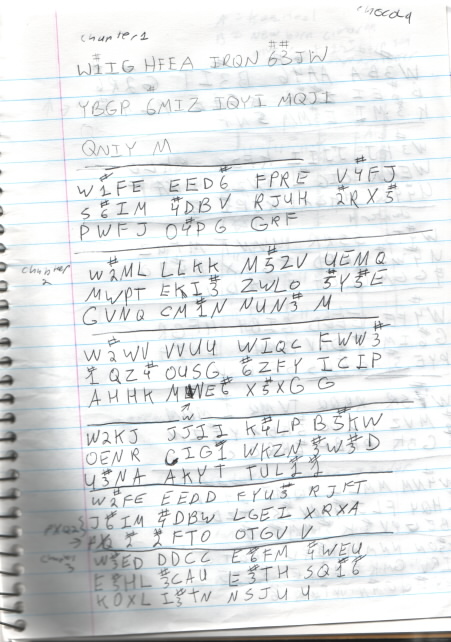 chapter 1
W1IG HFEA JRQN 63JW
YBGP 6MIZ IQYI MQJI
QNIY M
W1FE EED6 FPRE V4FJ
S6IM 4DBV RJUH 2RX5
PWFJ O4PG GRF
chapter 2
W2ML LLKK M5ZV UEMQ
MWPT EKI3 ZWLO 5Y5E
GVNQ CM1N NUN3 M
W2WV VVUU WIQC FWW3
1QZ4 OUSG 6ZFY ICIP
AHHK WE6 X5XG G
W2KJ JJII K4LP B5KW
OENR CIG1 WKZN 3W3D
U3NA AKYT TUL11
W2FE EEDD FYU3 RJFT
J6IM 4DBW LGEI XRXA
2 2FTO OTGV V
chapter 3
W3ED DDCC E6FM 4WEU
E3HL 3CAU E3TH SQ16
KOXL I3TN NSJU U